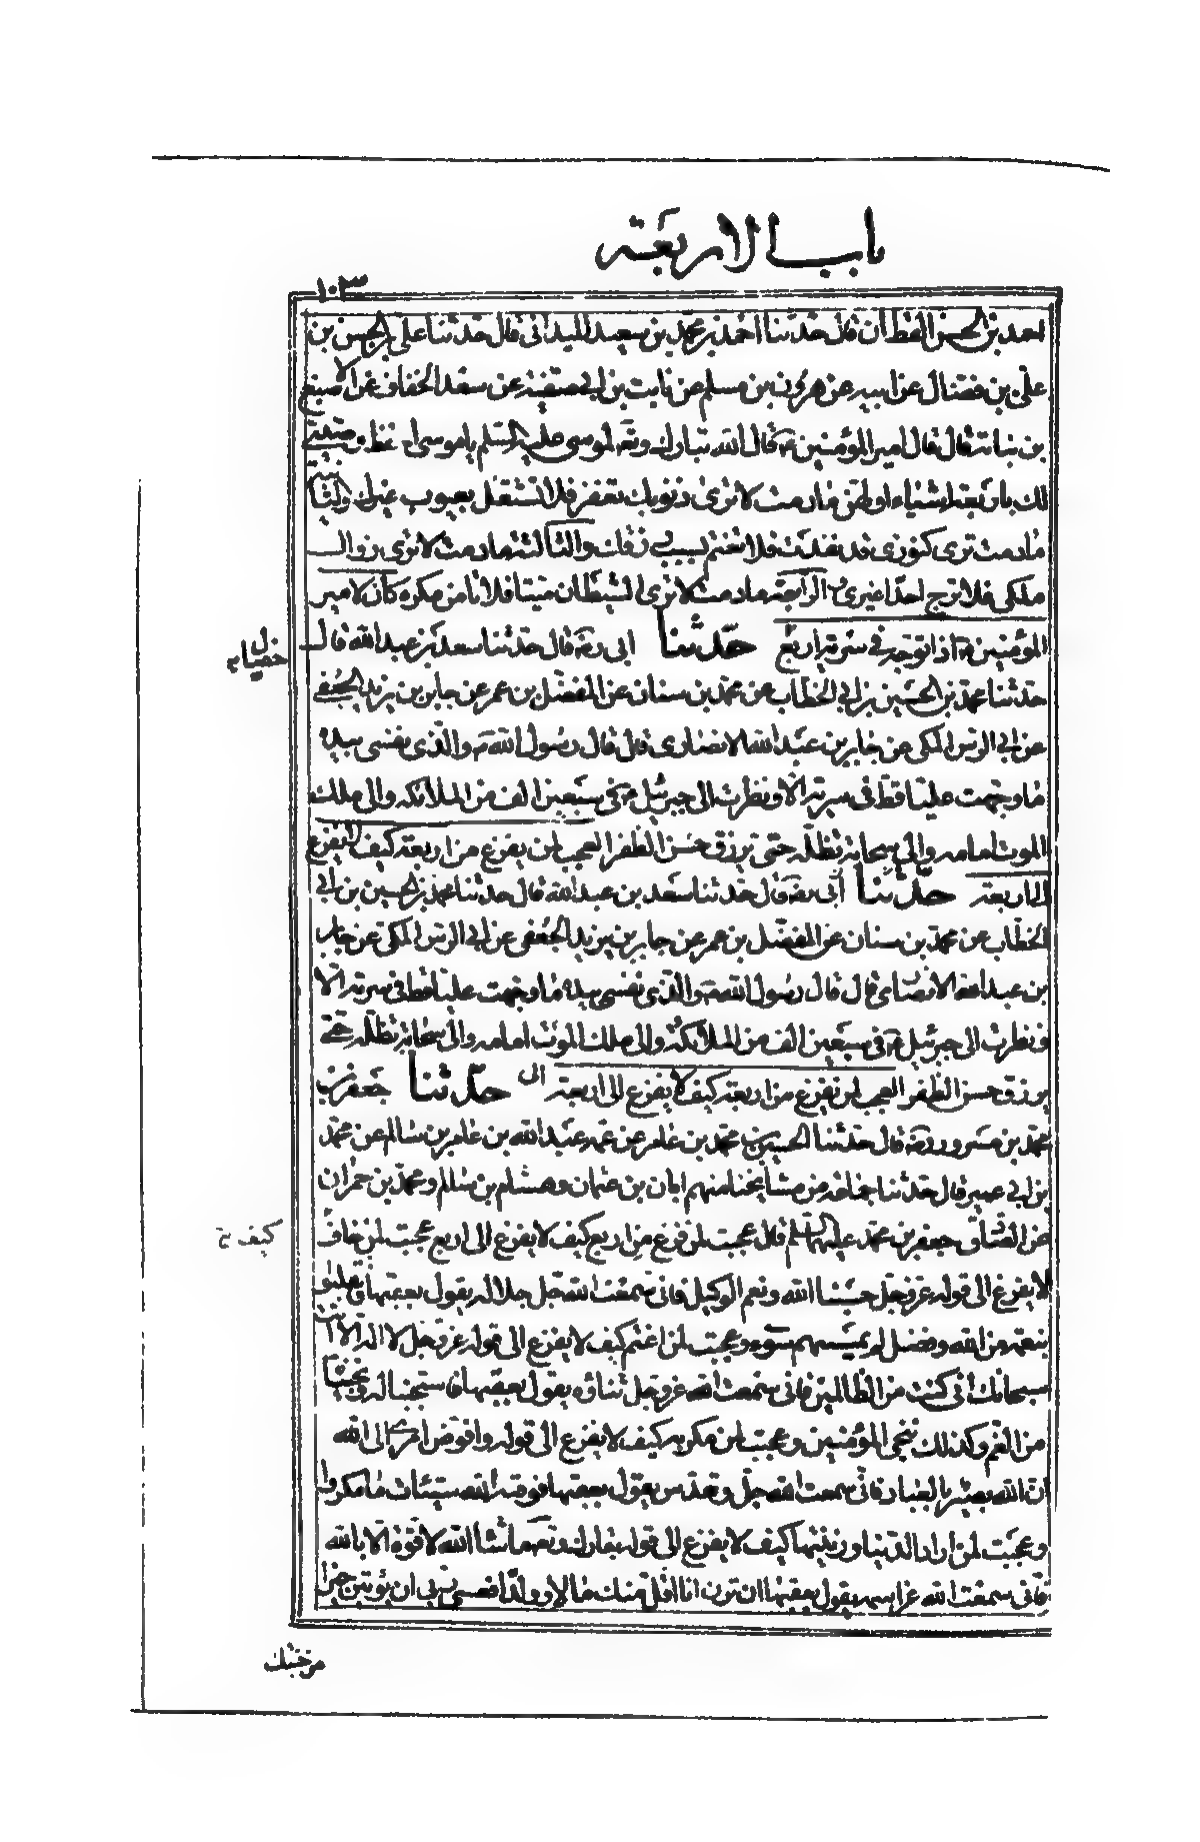 باب الاربعة
١٠٣
احمد بن الحسن القطان قال حدثنا احمد بن محمد بن سعيد الهمداني قال حدثنا على بن الحسن بن
على بن فضال عن ابيه عن هرون بن مسلم عن ثابت بن ابى صفية عن سعد الخفاف عن الاصبغ
بن نباتة قال قال امير المؤمنين ع قال الله تبارك وتعالى لموسى عليه السلم ياموسى احفظ وصيتى
لك باربعة اشياء اولهن مادمت لاترى ذنوبك تغفر فلا تشتغل بعيوب غيرك والثانية
مادمت ترى كنوزى قد نفدت فلا تغتم بسبب رزقك والثالثة مادمت لاترى زوال
ملكى فلا ترج احدا غيرى والرابعة مادمت لاترى الشيطان ميتا فلا تامن مكره كان لامير
المؤمنين ع اذا توجه فى سرية اربع حدثنا ابى ره قال حدثنا سعد بن عبد الله قال
خصال
حدثنا محمد بن الحسين بن ابى الخطاب عن محمد بن سنان عن المفضل بن عمر عن جابر بن يزيد الجعفى
عن ابى الزبير المكى عن جابر بن عبد الله الانصارى قال قال رسول الله ص والذى نفسى بيده
ما وجهت عليا قط فى سرية الا ونظرت الى جبرئيل ع فى سبعين الف من الملائكة والى ملك
الموت امامه والى سحابة تظله حتى يرزق حسن الظفر العجب لمن يفزع من اربعة كيف لايفزع
الى اربعة حدثنا ابى ره قال حدثنا سعد بن عبد الله قال حدثنا محمد بن الحسين بن ابى
الخطاب عن محمد بن سنان عن المفضل بن عمر عن جابر بن يزيد الجعفى عن ابى الزبير المكى عن جابر
بن عبد الله الانصارى قال قال رسول الله ص والذى نفسى بيده ما وجهت عليا قط فى سرية الا
ونظرت الى جبرئيل ع فى سبعين الف من الملائكة والى ملك الموت امامه والى سحابة تظله حتى
يرزق حسن الظفر العجب لمن يفزع من اربعة كيف لايفزع الى اربعة حدثنا جعفر بن
محمد بن مسرور ره قال حدثنا الحسين بن محمد بن عامر عن عمه عبد الله بن عامر بن سالم عن محمد
بن ابى عمير قال حدثنا جماعة من مشايخنا منهم ابان بن عثمان وهشام بن سالم ومحمد بن حمران
عن الصادق جعفر بن محمد عليهما السلم قال عجبت لمن فزع من اربع كيف لايفزع الى اربع عجبت لمن خاف
كيف خ
لايفزع الى قوله عز وجل حسبنا الله ونعم الوكيل فانى سمعت الله جل جلاله يقول بعقبها فانقلبوا
بنعمة من الله وفضل لم يمسسهم سوء وعجبت لمن اغتم كيف لايفزع الى قوله عز وجل لا اله الا انت
سبحانك انى كنت من الظالمين فانى سمعت الله عز وجل ثناؤه يقول بعقبها فاستجبنا له ونجيناه
من الغم وكذلك ننجى المؤمنين وعجبت لمن مكر به كيف لايفزع الى قوله وافوض امرى الى الله
ان الله بصير بالعباد فانى سمعت الله جل وتقدس يقول بعقبها فوقيه الله سيئات ما مكروا
وعجبت لمن اراد الدنيا وزينتها كيف لايفزع الى قوله تبارك وتعالى ماشاء الله لا قوة الا بالله
فانى سمعت الله عز اسمه يقول بعقبها ان ترن انا اقل منك مالا وولدا فعسى ربى ان يؤتين خيرا
من جنتك